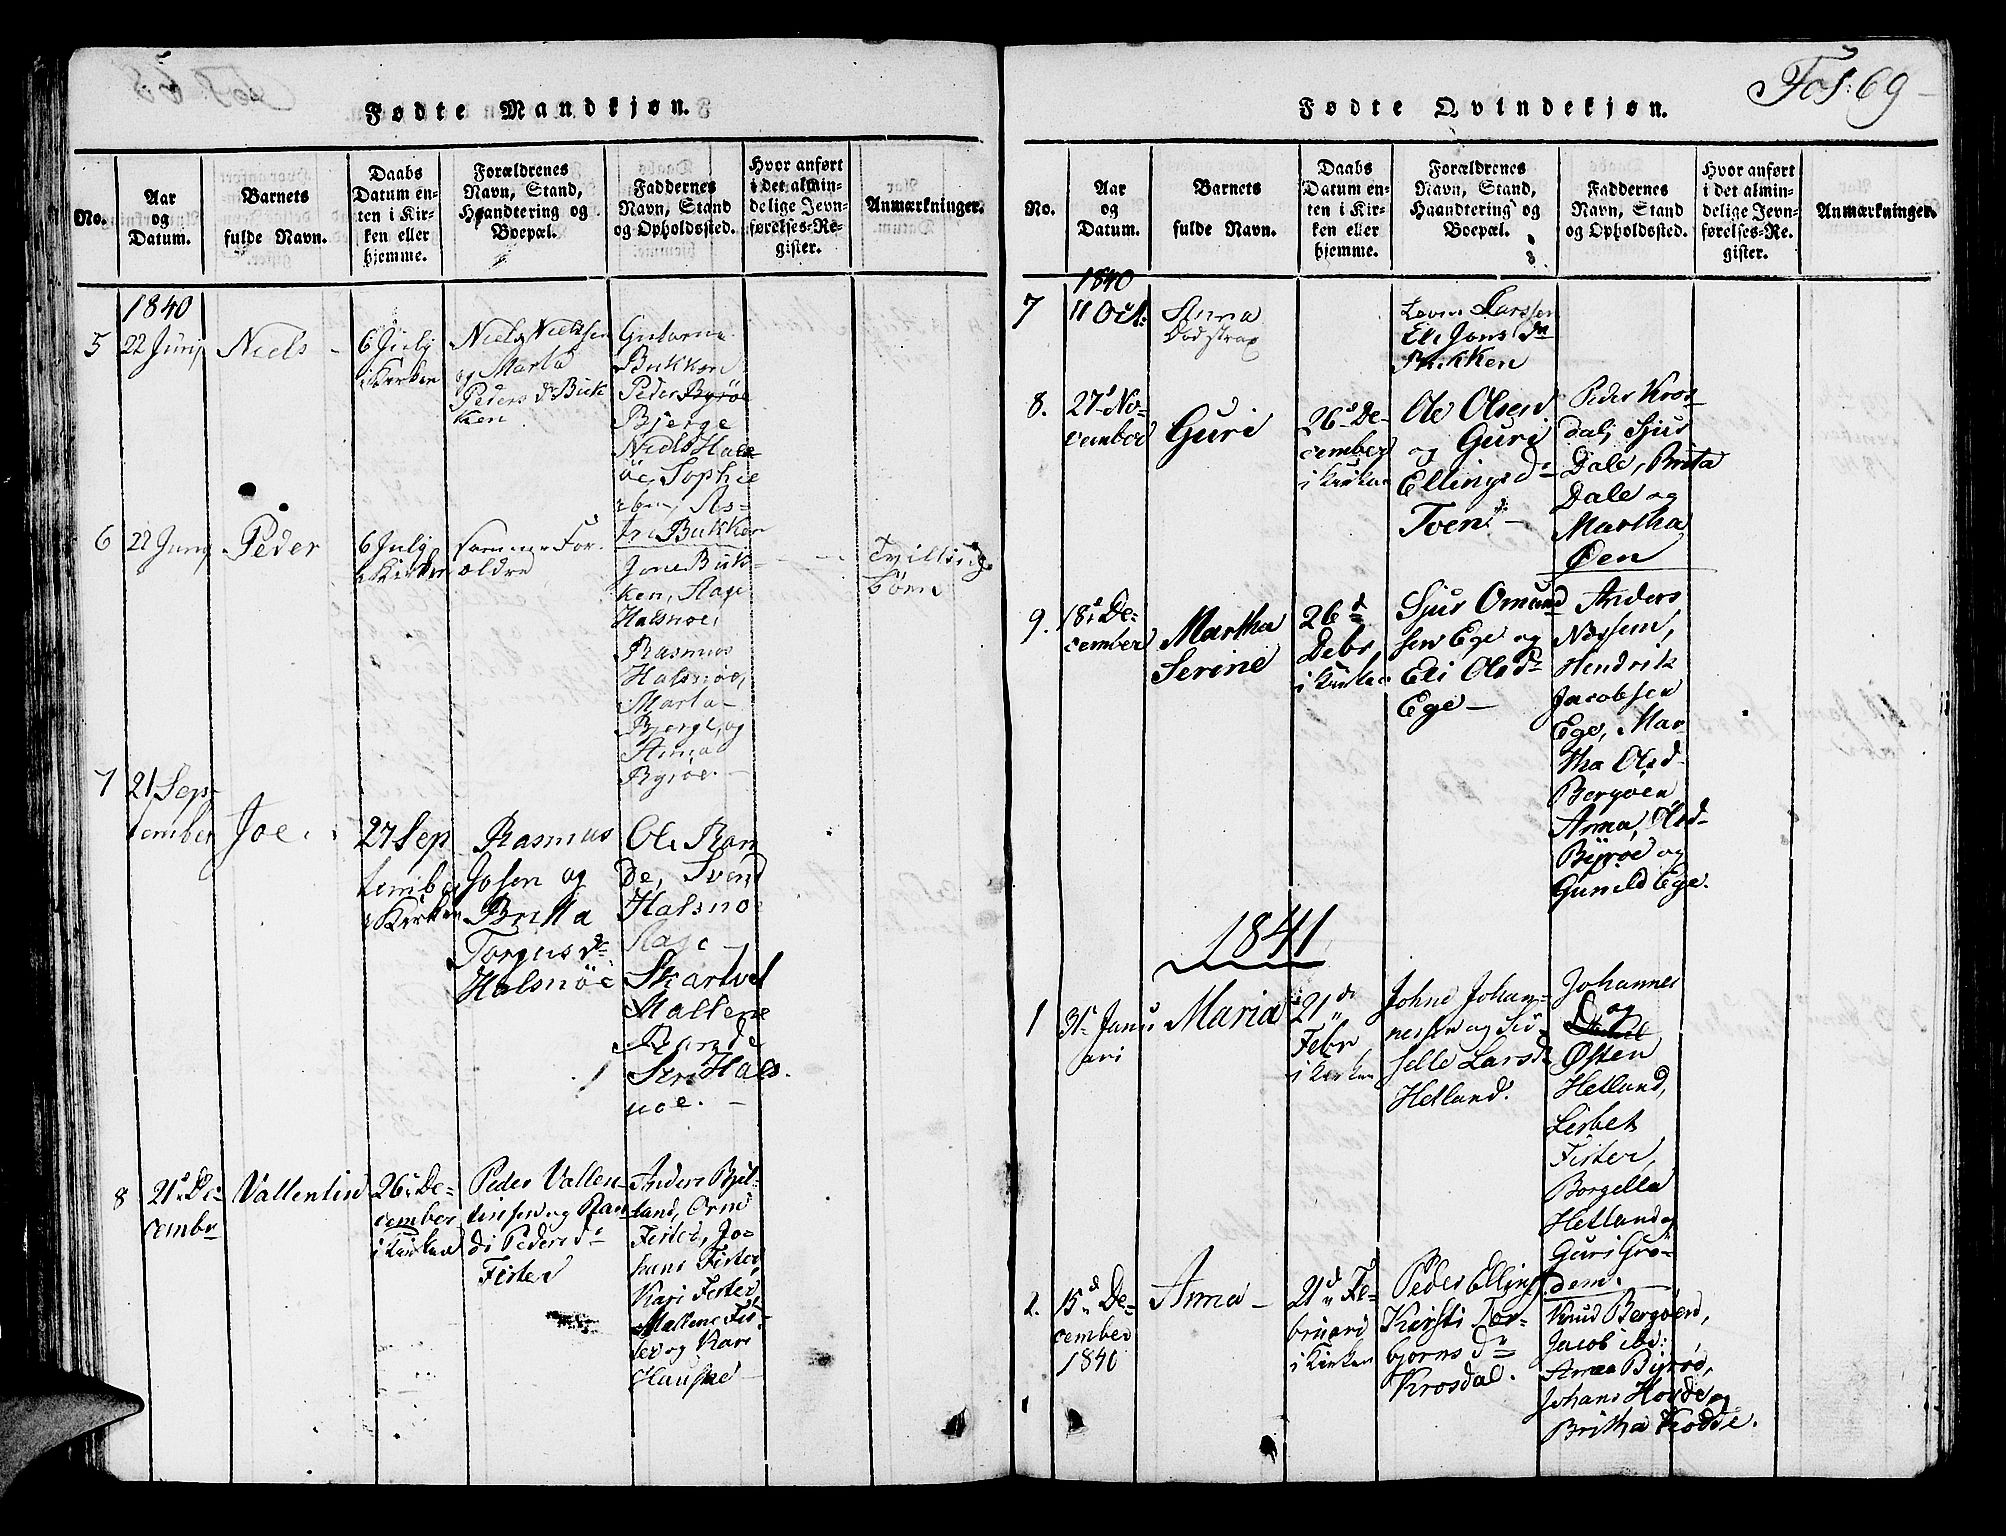 Fødte Mandkjøn.
No.
Aar
og
Datum.
Barnets
fulde Navn.
Daabs
Datum en-
ten i Kir-
ken eller
hjemme.
Forældrenes
Navn, Stand,
Haandtering og
Boepæl.
Faddernes
Navn, Stand
og Opholdssted.
Hvor anført
i det almin-
delige Jevn-
førelses-Re-
gister.
Anmærkninger.
1840
5
22 Junj
Niels
6 July
i Kirken
Niels Nielssen
og Marta
Peders d. Buk
ken
Bukken
Peder Byrøe
Bjerge
Niels Hals-
øe, Sophie
Bukken
6
22 Junj
Peder
6 July
i Kirken
samme For-
ældre
Jone Buk-
ken, Aage
Halsnøe,
Rasmus
Halsnøe,
Marta
Bjerge, og
Anna
Byrøe.
Tvilling-
børn
7
21 Sep-
tember
Joe
27 Sep
tember
i Kirken
Rasmus
Josen og
Britta
Torgersd.
Halsnøe
Ole Ran
de, Svend
Halsnoe
Aage
Skartvel
Mallene
Rande
Siri Hals-
noe.
8
21d De-
cembr
Vallentin
26d De-
cember
i Kirken
Peder Vallen-
tinsen og Ran-
di Pedersd.
Fister
Anders Bjel-
land, Orm
Fister, Jo-
hans Fister,
Kari Fister,
Mallene Fis-
ter og Kari
Hauske
Fol: 69
Fødte Qvindekjøn.
No.
Aar
og
Datum.
Barnets
fulde Navn.
Daabs
Datum en-
ten i Kir-
ken eller
hjemme.
Forældrenes
Navn, Stand,
Haandtering og
Boepæl.
Faddernes
Navn, Stand
og Opholdssted.
Hvor anført
i det almin-
delige Jevn-
førelses-Re-
gister.
Anmærkninger.
1840
7
11 Oct:
Anna
Larssen
Eli Jonsd.
Bukken
8.
27d No-
vember
Guri
26d De-
cember
i Kirken
Ole Olsen
og Guri
Ellingsd.
Tvend
Peder Kros-
dal, Sjur
Dale, Brita
Dale og
Martha
Øen
9.
18d De-
cember
Martha
Serine
26d
Debr,
i Kirken
Sjur Omund
sen Ege og
Eli Olsd.
Ege
Anders
Nessem,
Hendrik
Jacobsen
Ege, Mar-
tha Olsd.
Bergøen
Anna Olsd.
Byrøe og
Gunild Ege.
1841
1
31 Janu
ari
Maria
21 d.
Febr
i Kirken
Johne Johan-
nessen og Sid-
selle Larsd.
Hetland.
Johannes
og
Østen
Hetland,
Lisbet
Fister,
Borgella
Hetland og
Guri Gro-
dem.
2.
15d De-
cember
1840
Anna
21d Fe-
bruari
i Kirken
Peder Ellings
Kirsti Tor-
bjørnsd.
Krosdal.
Knud Bergøen,
Jacob ibd:
Anna Byrøe,
Johans Hodde, og
Britha Hodde.